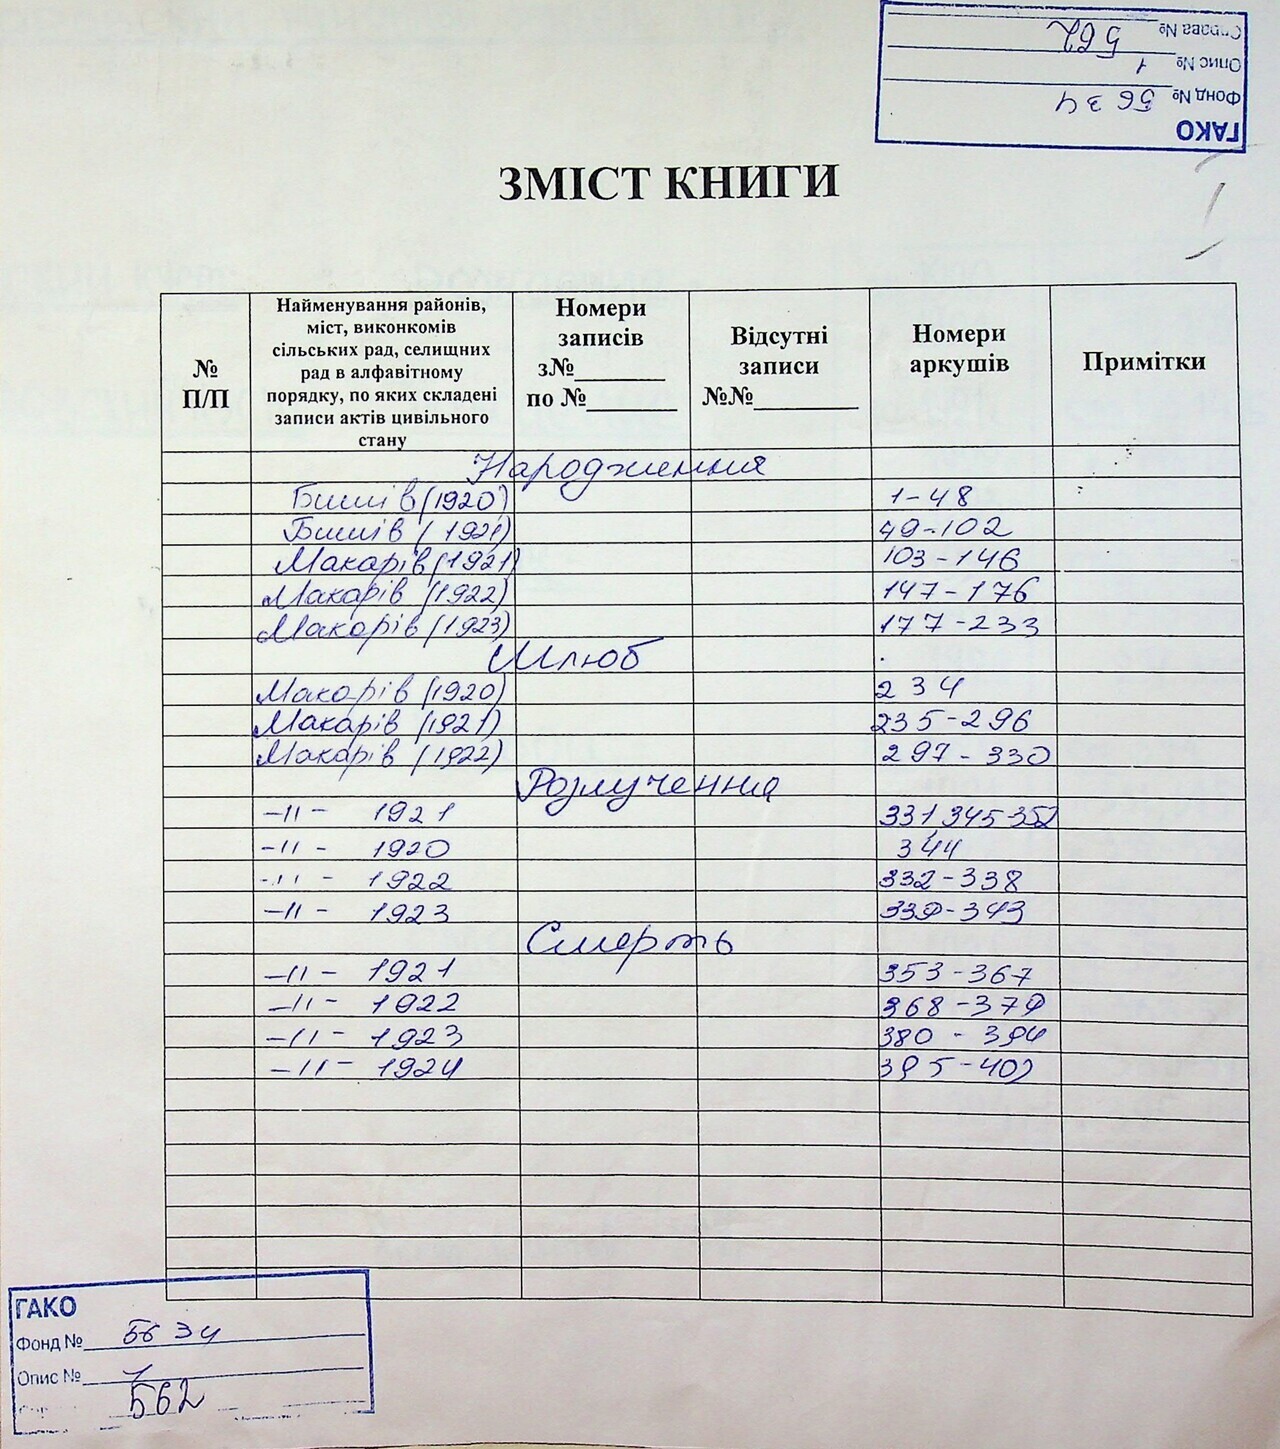 Справа № 562
Опис № 1
Фонд № 5634
ГАКО
ЗМІСТ КНИГИ
№ П/П
Найменування районів,
міст, виконкомів
сільських рад, селищних
рад в алфавітному
порядку, по яких складені
записи актів цивільного
стану
Номери
записів
з№
по №
Відсутні
записи
№№
Номери
аркушів
Примітки
Народження
Бишів (1920) 1-48
Бишів (1921) 49-102
Макарів (1921) 103-146
Макарів (1922) 147-176
Макарів (1923) 177-233
Шлюб
Макарів (1920) 234
Макарів (1921) 235-296
Макарів (1922) 297-330
Розлучення
-11- 1921 331, 345-352
-11- 1920 344
-11- 1922 332-338
-11- 1923 339-343
Смерть
-11- 1921 353-367
-11- 1922 368-379
-11- 1923 380-394
-11- 1924
ГАКО
Фонд № 5634
Опис № 1
562